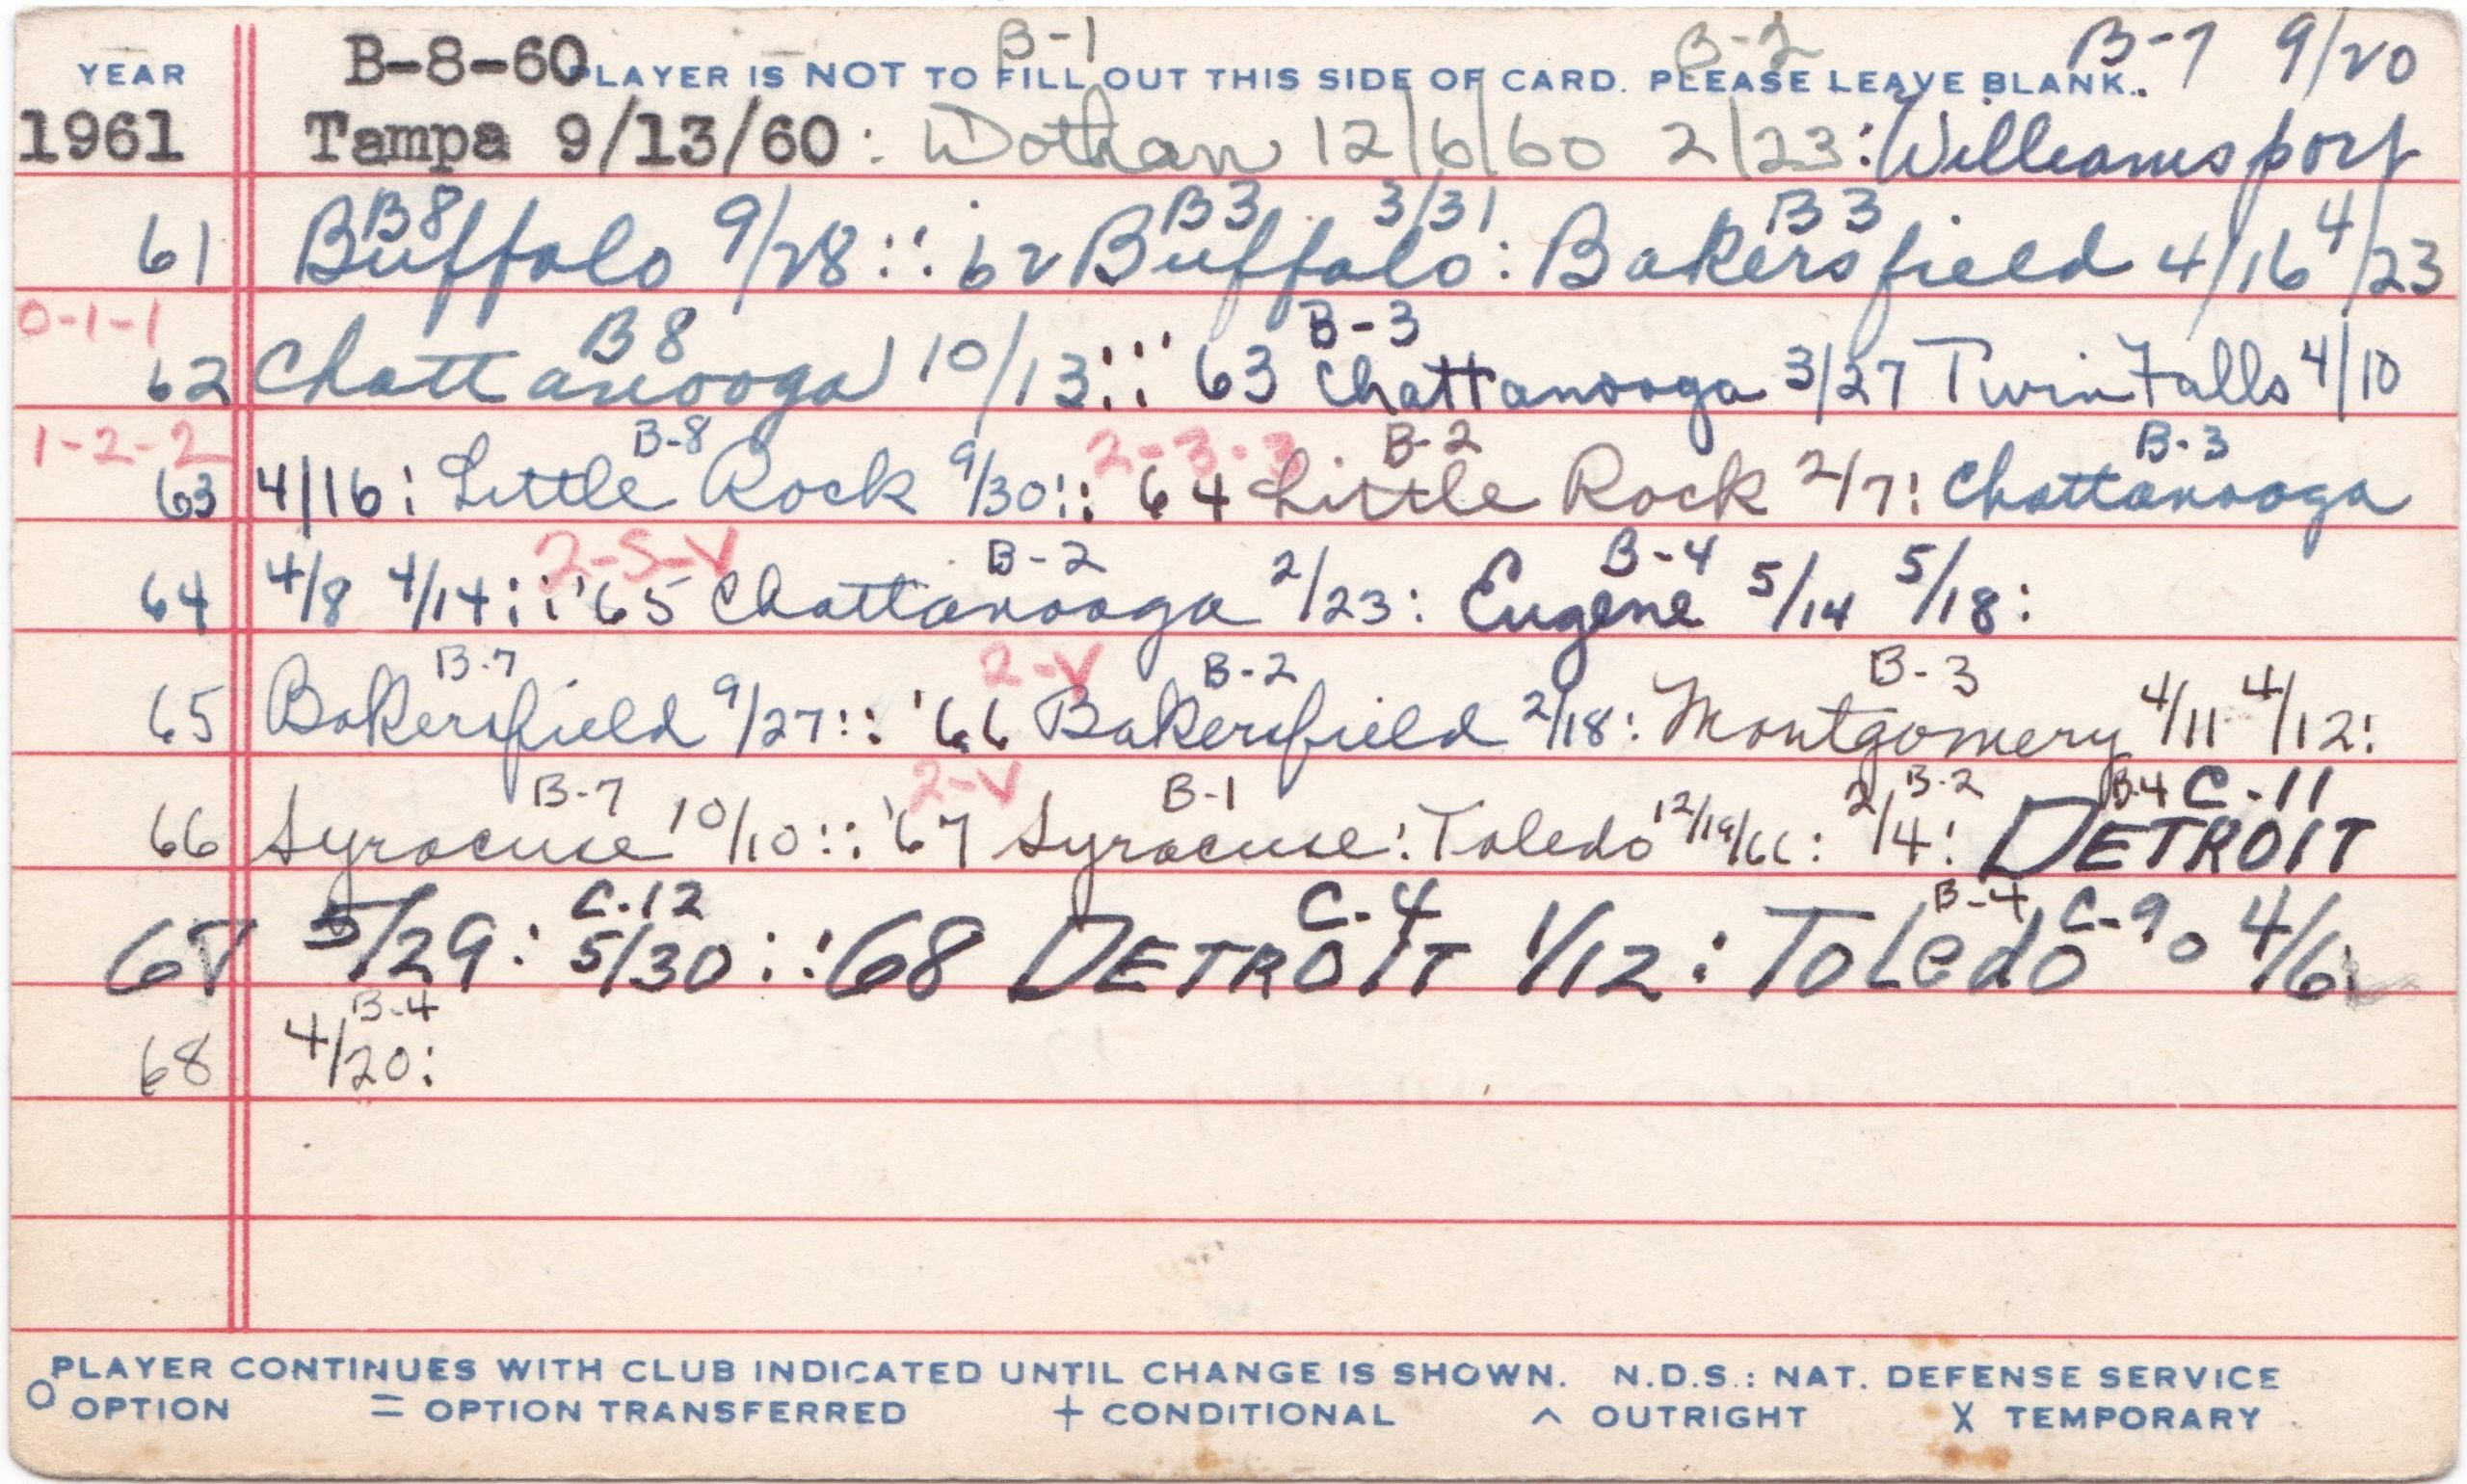 B-8-60 B-1 B-2 B-7 9/20
YEAR PLAYER IS NOT TO FILL OUT THIS SIDE OF CARD. PLEASE LEAVE BLANK.
1961 Tampa 9/13/60: Dothan 12/6/60 2/23: Williamsport
B8 B3 3/31 B3
61 Buffalo 9/28:: '62 Buffalo: Bakersfield 4/16 4/23
0-1-1 B8 B-3
62 Chattanooga 10/13::' 63 Chattanooga 3/27 Twin Falls 4/10
1-2-2 B-8 2-3-3 B-2 B-3
63 4/16: Little Rock 9/30:: '64 Little Rock 2/7: Chattanooga
2-S-V B-2 B-4
64 4/8 4/14:: '65 Chattanooga 2/23: Eugene 5/14 5/18:
B-7 2-V B-2 B-3
65 Bakersfield 9/27:: '66 Bakersfield 2/18: Montgomery 4/11 4/12:
B-7 2-V B-1 B-2 B-4 C-11
66 Syracuse 10/10:: '67 Syracuse: Toledo 12/19/66: 2/4: DETROIT
C-12 C-4 B-4 C-9
67 5/29: 5/30:: '68 DETROIT 1/12: Toledo o 4/6:
B-4
68 4/20:
PLAYER CONTINUES WITH CLUB INDICATED UNTIL CHANGE IS SHOWN. N.D.S.: NAT. DEFENSE SERVICE
O OPTION = OPTION TRANSFERRED + CONDITIONAL ^ OUTRIGHT X TEMPORARY